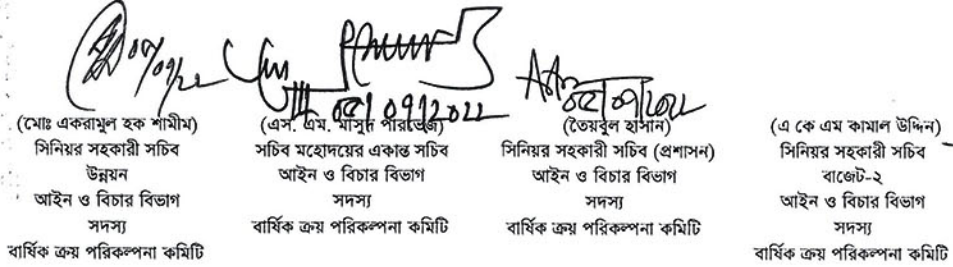 ০৫/০৭/২২
০৫/০৭/২০২২
০৫/০৭/২০২২
(মোঃ একরামুল হক শামীম)
সিনিয়র সহকারী সচিব
উন্নয়ন
আইন ও বিচার বিভাগ
সদস্য
বার্ষিক ক্রয় পরিকল্পনা কমিটি
(এস. এম. মাসুদ পারভেজ)
সচিব মহোদয়ের একান্ত সচিব
আইন ও বিচার বিভাগ
সদস্য
বার্ষিক ক্রয় পরিকল্পনা কমিটি
(তৈয়বুল হাসান)
সিনিয়র সহকারী সচিব (প্রশাসন)
আইন ও বিচার বিভাগ
সদস্য
বার্ষিক ক্রয় পরিকল্পনা কমিটি
(এ কে এম কামাল উদ্দিন)
সিনিয়র সহকারী সচিব
বাজেট-২
আইন ও বিচার বিভাগ
সদস্য
বার্ষিক ক্রয় পরিকল্পনা কমিটি